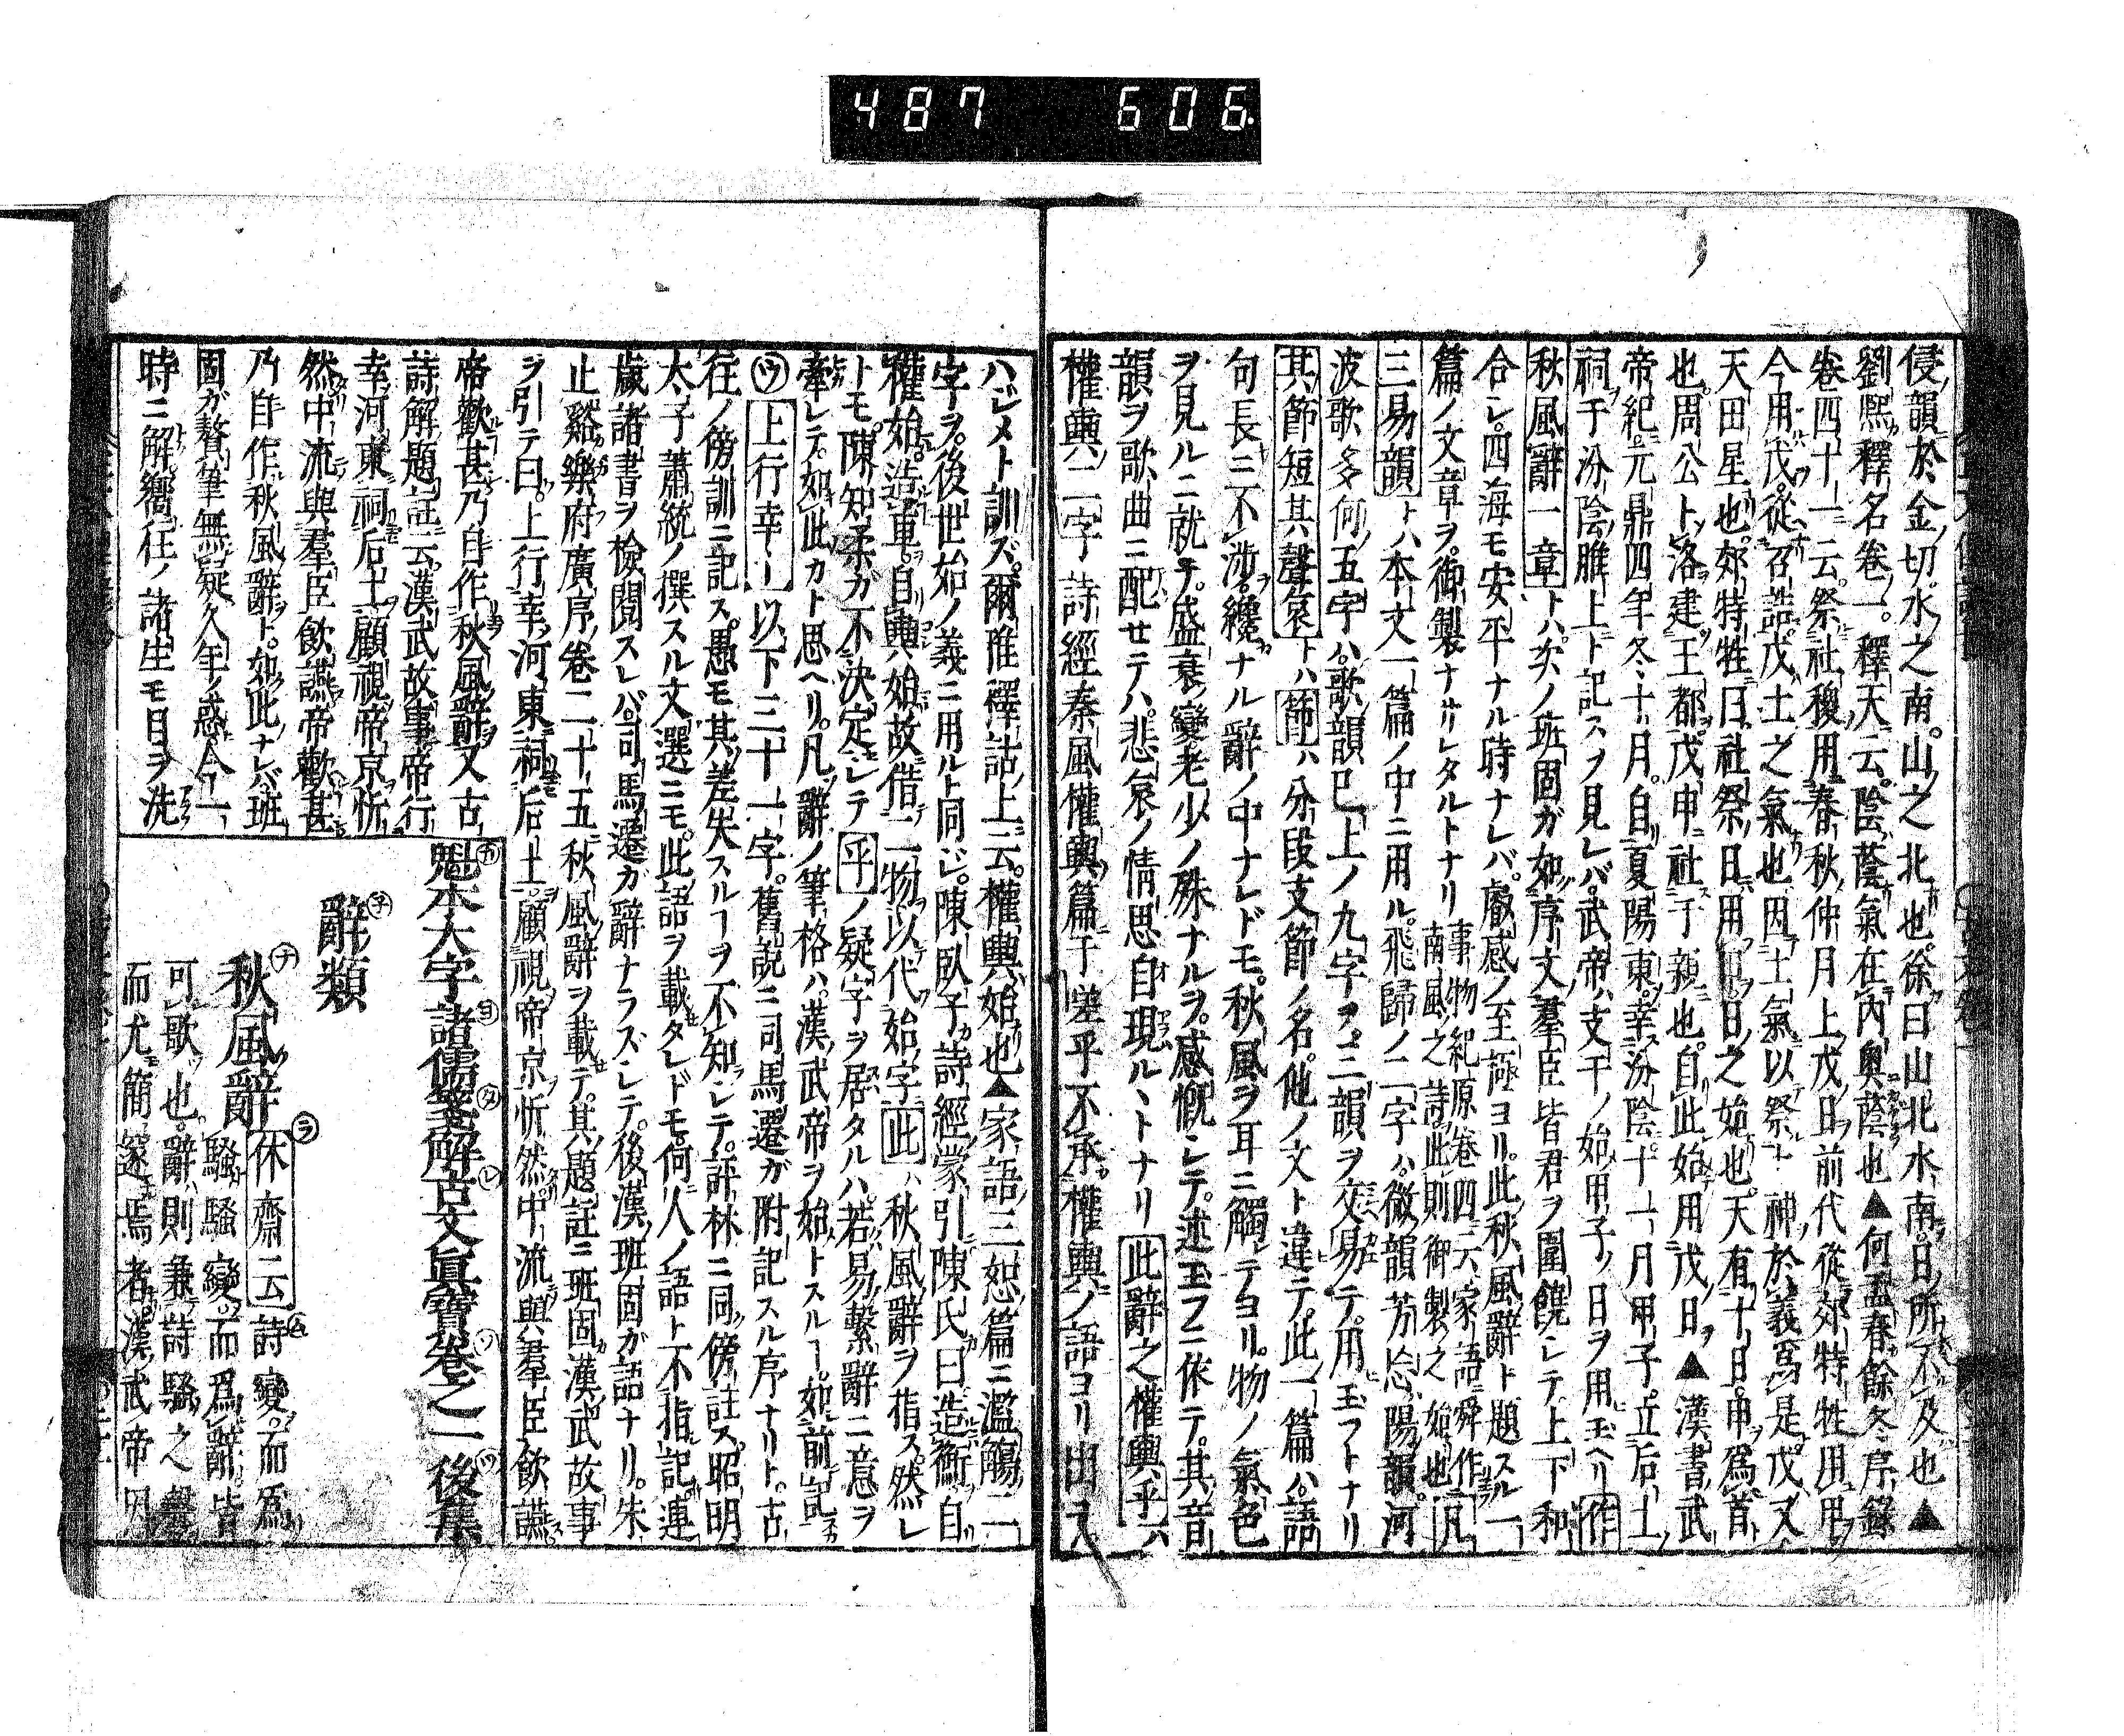 487 606
侵韻於金切水之南山之北也徐曰山北水南日所不及也▲
劉熙釋名卷一釋天云陰蔭氣在內奧蔭也▲何孟春餘冬序錄
卷四十一云祭社稷用春秋仲月上戊日前代從郊特牲用甲
今用戊從召誥戊土之氣也因土氣以祭土神於義爲是戊又
天田星也郊特牲曰社祭日用甲日之始也天有十日甲爲首
也周公卜洛建王都戊申社于新也自此始用戊日▲漢書武
帝紀元鼎四年冬十月自夏陽東幸汾陰十一月甲子立后土
祠于汾陰脽上ト記スヲ見レバ武帝ハ支干ノ始甲子ノ日ヲ用玉ヘリ作
秋風辭一章トハ矣ノ班固ガ如序文羣臣皆君ヲ圍饒シテ上下和
合シ四海モ安平ナル時ナレバ叡感ノ至極ヨリ此秋風辭ト題スル一
篇ノ文章ヲ御製ナサレタルトナリ事物紀原卷四云家語舜作南風之詩此則御製之始也凡
三易韻トハ本文一篇ノ中ニ用ル飛歸ノ二字ハ微韻芳忘陽韻河
波歌多何五字ハ歌韻已上ノ九字ヲ三韻ヲ交易テ用玉フトナリ
其節短其聲哀トハ節ハ分段支節ノ名他ノ文ト違テ此一篇ハ語
句長三不涉纔ナル辭ノ中ナレドモ秋風ヲ耳ニ觸テヨリ物ノ氣色
ヲ見ルニ就テ盛衰變老少ノ殊ナルヲ感慨シテ述玉フニ依テ其音
韻ヲ歌曲ニ配セテハ悲哀ノ情思自現ルヽトナリ此辭之權輿乎ハ
權輿二字詩經秦風權輿篇于嗟乎不承權輿ノ語ヨリ出又
ハジメト訓ズ爾雅釋詁上云權輿始也▲家語三恕篇ニ濫觴二
字ヲ後世始ノ義ニ用ルト同ジ陳臥子詩經蒙引陳氏曰造衡自
權始造車自輿始故借二物以代始字此ハ秋風辭ヲ指ス然レ
トモ陳知柔ガ不決定シテ乎ノ疑字ヲ居タルハ若易繫辭ニ意ヲ
牽レテ如此カト思ヘリ凡辭ノ筆格ハ漢武帝ヲ始トスルヿ如前記
上行幸ーー以下三十一字舊説ニ司馬遷ガ附記スル序ナリト古
往ノ傍訓ニ記ス愚モ其差失スルヿヲ不知シテ評林ニ同傍註ス昭明
太子蕭統ノ撰スル文選ニモ此語ヲ載タレドモ何人ノ語ト不指記連
歲諸書ヲ檢閱スレバ司馬遷ガ辭ナラズシテ後漢班固ガ語ナリ朱
止谿樂府廣序卷二十五秋風辭ヲ載テ其題註ニ班固漢武故事
ヲ引テ曰上行幸河東祠后土顧視帝京忻然中流與羣臣飲讌
帝歡甚乃自作秋風辭又古
詩解題註云漢武故事帝行
幸河東祠后土顧視帝京忻
然中流與羣臣飲讌帝歡甚
乃自作秋風辭ト如此ナレバ班
固ガ贅筆無疑久年ノ惑今一
時ニ解嚮往ノ諸生モ目ヲ洗
魁本大字諸儒箋解古文眞寶卷之一後集
辭類
秋風辭
休齋云詩變而爲
騷騷變而爲辭皆
可歌也辭則兼詩騷之聲
而尤簡邃焉者漢武帝因